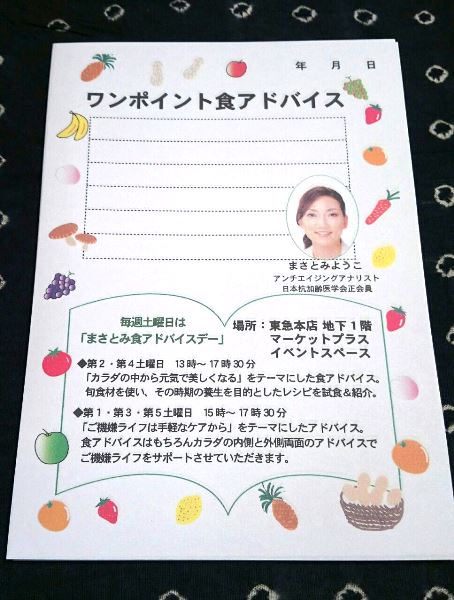 年 月 日
ワンポイント食アドバイス
まさとみようこ
アンチエイジングアナリスト
日本抗加齢医学会正会員
毎週土曜日は
「まさとみ食アドバイスデー」
場所：東急本店 地下１階
マーケットプラス
イベントスペース
◆第２・第４土曜日 13時〜17時30分
「カラダの中から元気で美しくなる」をテーマにした食アドバイス。
旬食材を使い、その時期の養生を目的としたレシピを試食＆紹介。
◆第１・第３・第５土曜日 15時〜17時30分
「ご機嫌ライフは手軽なケアから」をテーマにしたアドバイス。
食アドバイスはもちろんカラダの内側と外側両面のアドバイスで
ご機嫌ライフをサポートさせていただきます。